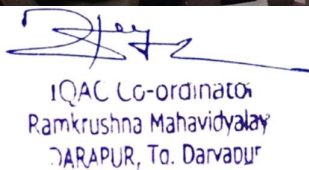 IQAC Co-ordinator
Ramkrushna Mahavidyalay
DARAPUR, Tq. Daryapur